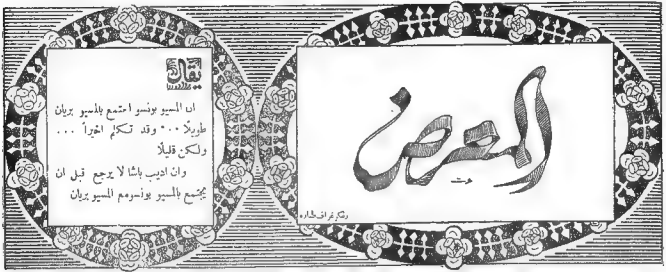 المعرض
يقال
ان المسيو بونسو اجتمع بالمسيو بريان
طويلاً ... وقد تكلم اخيراً ...
ولكن قليلاً
وان اديب باشا لا يرجع قبل ان
يجتمع بالمسيو بونسو مع المسيو بريان